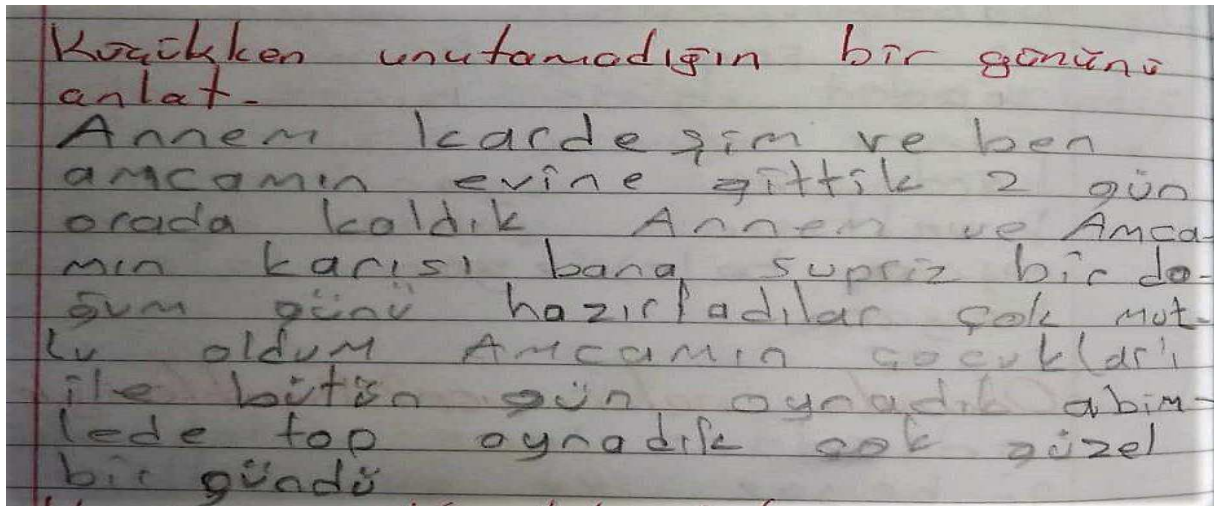 Küçükken unutamadığın bir gününü
anlat.
Annem kardeşim ve ben
amcamın evine gittik 2 gün
orada kaldık Annem ve Amca-
mın karısı bana supriz bir do-
ğum günü hazırladılar çok mut-
lu oldum Amcamın çocukları
ile bütün gün oynadık abim-
lede top oynadık çok güzel
bir gündü